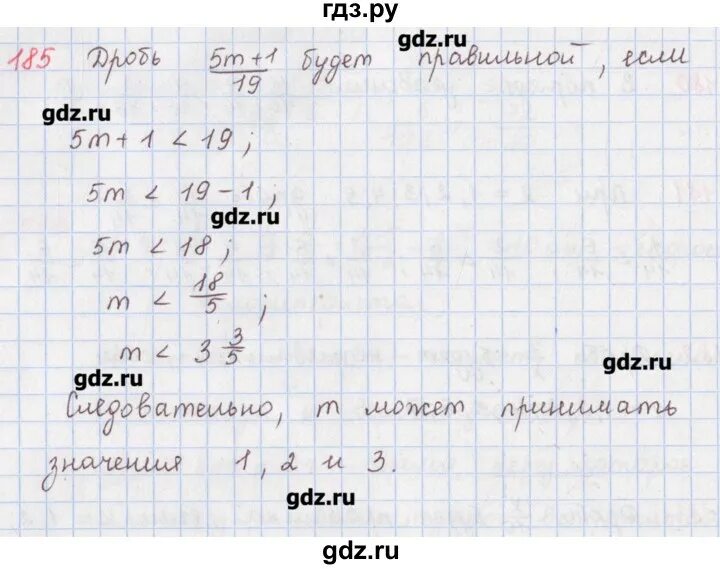 гдз.ру
185 Дробь (5m+1)/19 будет правильной, если
gdz.ru
gdz.ru
5m+1 < 19;
5m < 19-1;
gdz.ru
5m < 18;
m < 18/5;
m < 3 3/5
gdz.ru
gdz.ru
Следовательно, m может принимать
значения 1, 2 и 3.
gdz.ru
gdz.ru